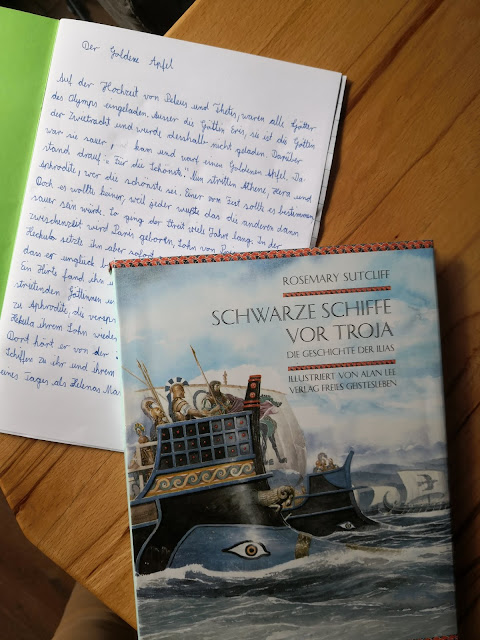 Der Goldene Apfel
Auf der Hochzeit von Peleus und Thetis, waren alle Götter
des Olymps eingeladen. Ausser die Göttin Eris, sie ist die Göttin
der Zwietracht und wurde desshalb nicht geladen. Darüber
war sie sauer, kam und warf einen Goldenen Apfel. Da
stand drauf: "Für die Schönste." Nun stritten Athene, Hera und
Aphrodite, wer die schönste sei. Einer vom Fest sollte es bestimmen,
Doch es wollte keiner, weil jeder wusste das die anderen dann
sauer sein würd. So ging der Streit viele Jahre lang. In der
zwieschenzeit wird Paris geboren, Sohn von
Hekuba setzte ihn aber sofort
dass er unglück b
Ein Hirte fand ihn u
streitenden Göttinnen u
zu Aphrodite, die versp
Hekuba ihrem Sohn wieder
Dort hört er von der
Schiffen zu ihr und ihrem
eines Tages als Helenas Ma
ROSEMARY SUTCLIFF
SCHWARZE SCHIFFE
VOR TROJA
DIE GESCHICHTE DER ILIAS
ILLUSTRIERT VON ALAN LEE
VERLAG FREIES GEISTESLEBEN